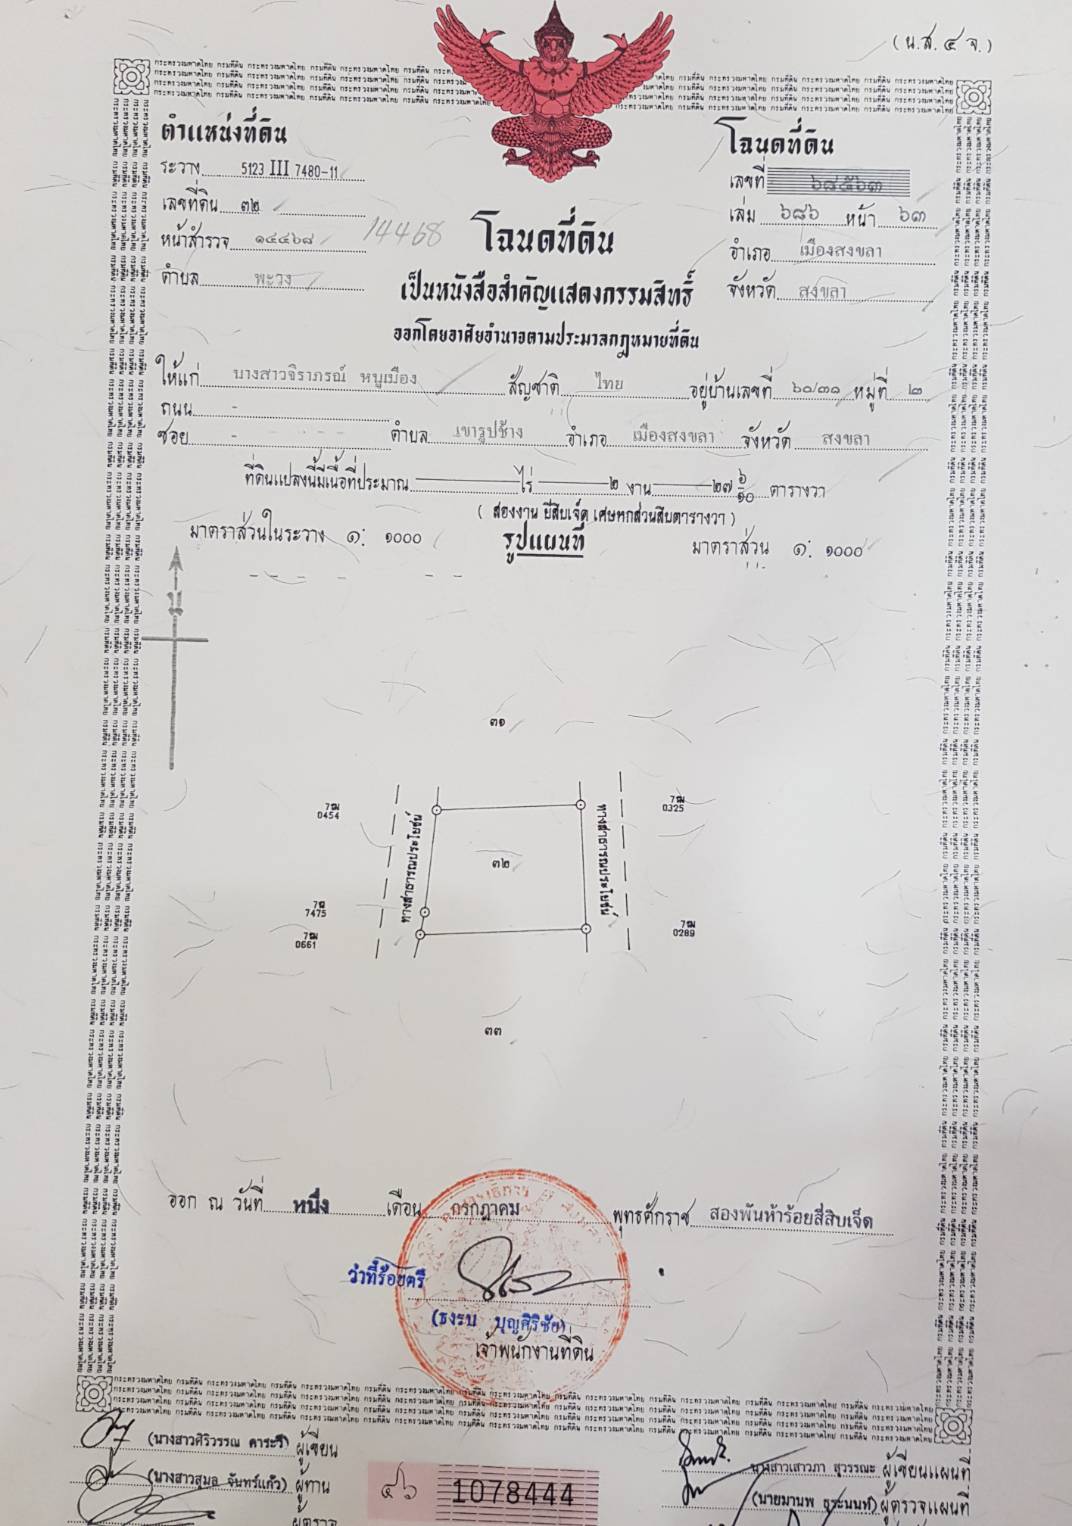 (น.ส. ๔ จ.)
ตำแหน่งที่ดิน
ระวาง 5123 III 7480-11
เลขที่ดิน ๓๒
หน้าสำรวจ ๑๔๔๖๘ 14468
ตำบล พะวง
โฉนดที่ดิน
เลขที่ ๖๘๕๖๓
เล่ม ๖๘๖ หน้า ๖๓
อำเภอ เมืองสงขลา
จังหวัด สงขลา
โฉนดที่ดิน
เป็นหนังสือสำคัญแสดงกรรมสิทธิ์
ออกโดยอาศัยอำนาจตามประมวลกฎหมายที่ดิน
ให้แก่ นางสาวจิราภรณ์ หนูเมือง สัญชาติ ไทย อยู่บ้านเลขที่ ๖๐/๓๑ หมู่ที่ ๒
ถนน -
ซอย - ตำบล เขารูปช้าง อำเภอ เมืองสงขลา จังหวัด สงขลา
ที่ดินแปลงนี้มีเนื้อที่ประมาณ ไร่ ๒ งาน ๒๗ ๖/๑๐ ตารางวา
( สองงาน ยี่สิบเจ็ด เศษหกส่วนสิบตารางวา )
มาตราส่วนในระวาง ๑: ๑๐๐๐ รูปแผนที่ มาตราส่วน ๑: ๑๐๐๐
น
๓๑
7ฒ
0454
7ฒ
0325
ทางสาธารณประโยชน์
ทางสาธารณประโยชน์
๓๒
7475
7ฒ
0661
7ฒ
0289
๓๓
ออก ณ วันที่ หนึ่ง เดือน กรกฎาคม พุทธศักราช สองพันห้าร้อยสี่สิบเจ็ด
ว่าที่ร้อยตรี
(ธงรบ บุญสิริชัย)
เจ้าพนักงานที่ดิน
(นางสาวศิริวรรณ คาระวี) ผู้เขียน
(นางสาวสุมล จันทร์แก้ว) ผู้ทาน
ผู้ตรวจ
๔๖ 1078444
นางสาวเสาวภา สุวรรณะ ผู้เขียนแผนที่
(นายมานพ ธุระนนท์) ผู้ตรวจแผนที่